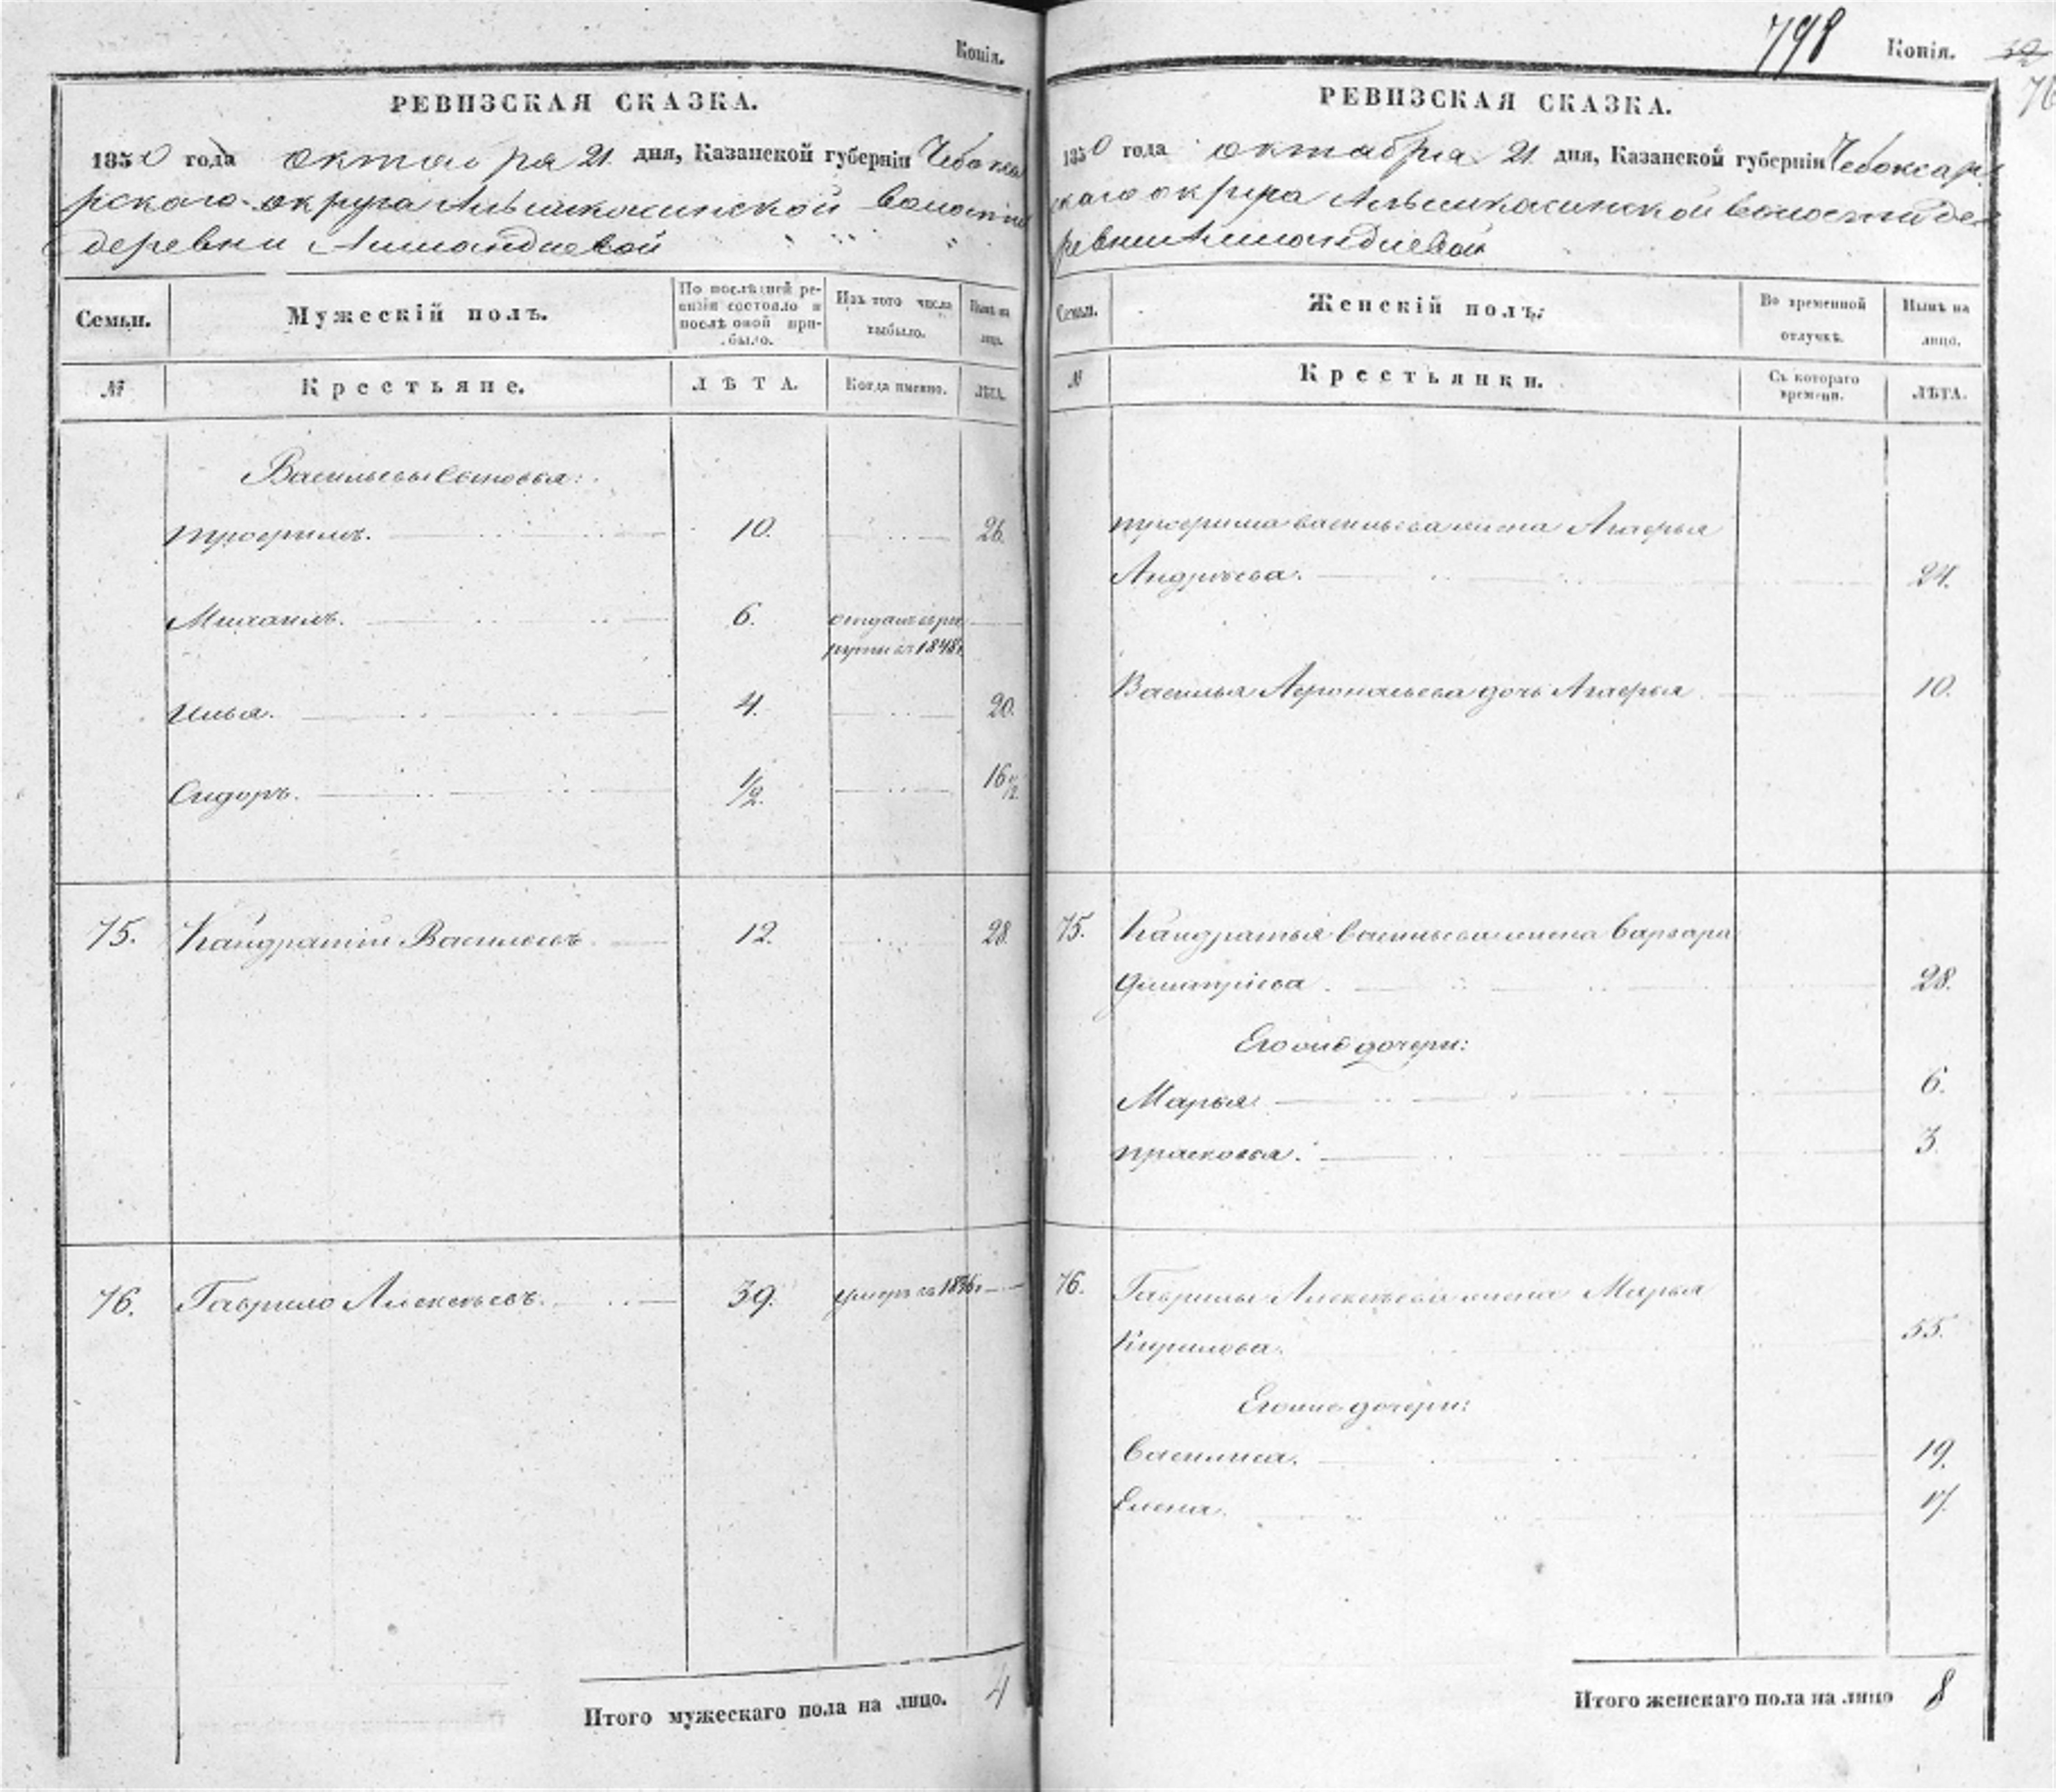 Копія.
РЕВИЗСКАЯ СКАЗКА.
1850 года октября 21 дня, Казанской губерніи Чебокса
рскаго округа волости
деревни
Семьи.
Мужескій полъ.
По послѣдней ре-
визіи состояло и
послѣ оной при-
было.
Изъ того числа
выбыло.
Нынѣ на
лицо.
№
Крестьяне.
ЛѢТА.
Когда именно.
ЛѢТА.
Васильевы сыновья:
Трофимъ. 10. 26.
Михаилъ. 6. отданъ въ рек
руты въ 1848 г.
Илья. 4. 20.
Сидоръ. 1/2. 16 1/2
75. Кандратій Васильевъ 12. 28.
76. Гаврило Алексѣевъ. 39. умеръ въ
Итого мужескаго пола на лицо. 4
798 Копія. 39
76
РЕВИЗСКАЯ СКАЗКА.
1850 года октября 21 дня, Казанской губерніи Чебоксар
скаго округа волости де
ревни
Семьи.
Женскій полъ:
Во временной
отлучкѣ.
Нынѣ на
лицо.
№
Крестьянки.
Съ котораго
времени.
ЛѢТА.
Трофима Васильева жена Агафья
Андрѣева. 24.
Василья дочь Агафья 10.
75. Кандратья Васильева жена Варвара
Димитріева. 28.
Его же дочери:
Марья 6.
Прасковья. 3.
76. Гаврилы Алексѣева жена Марья
Кирилова. 55.
Его же дочери:
Василиса. 19.
Елена. 17.
Итого женскаго пола на лицо 8